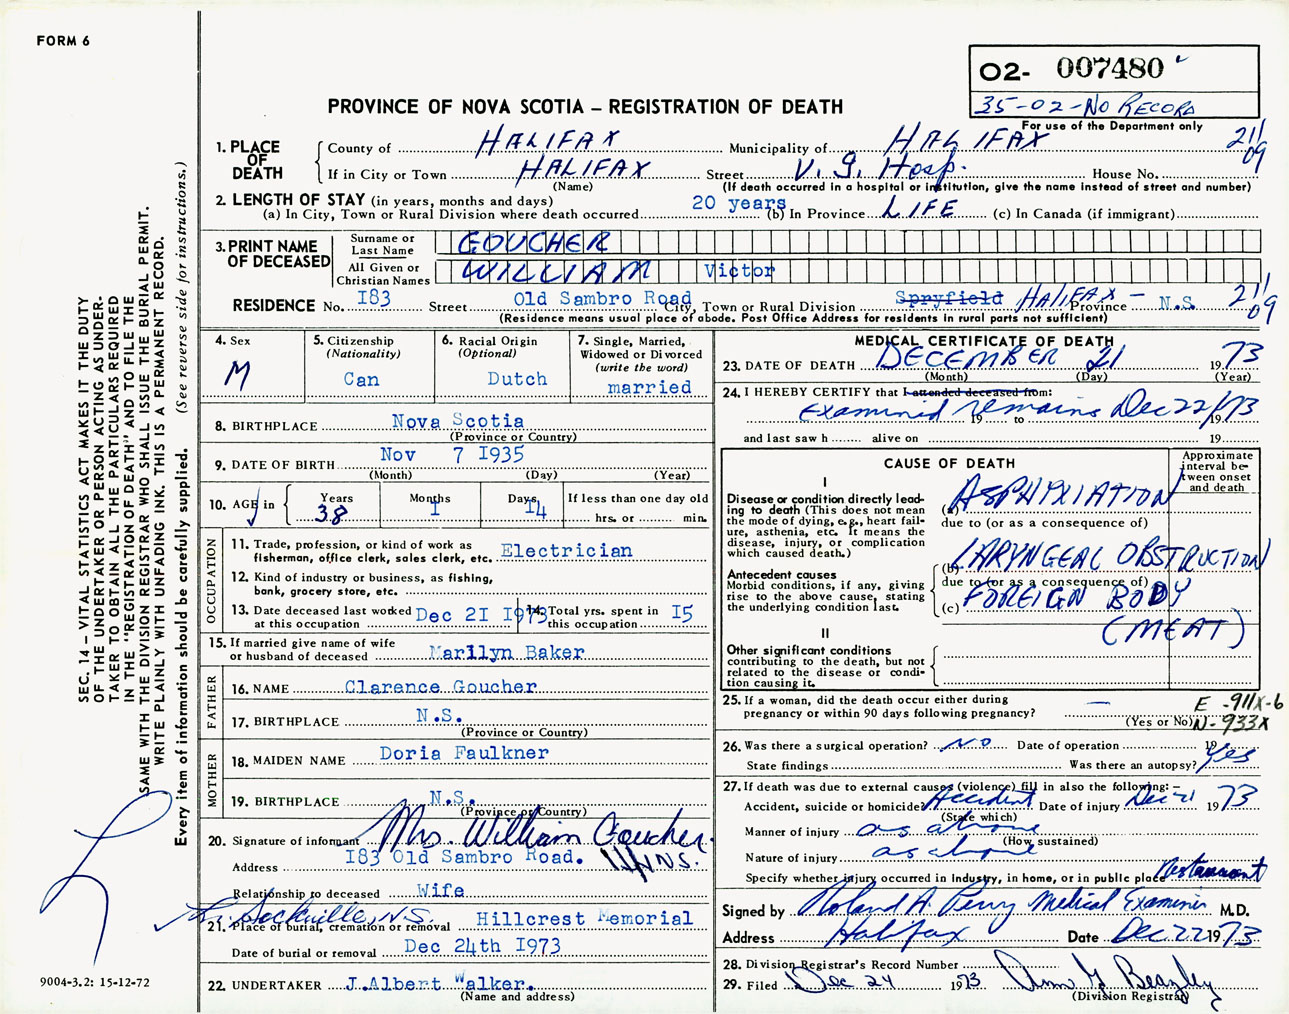 FORM 6
O2- 007480
35-02-NO RECORD
For use of the Department only
PROVINCE OF NOVA SCOTIA – REGISTRATION OF DEATH
211/09
1. PLACE OF DEATH
County of HALIFAX Municipality of HALIFAX
If in City or Town HALIFAX Street V. G. Hosp. House No.
(Name) (If death occurred in a hospital or institution, give the name instead of street and number)
2. LENGTH OF STAY (in years, months and days)
(a) In City, Town or Rural Division where death occurred 20 years (b) In Province LIFE (c) In Canada (if immigrant)
3. PRINT NAME OF DECEASED
Surname or Last Name GOUCHER
All Given or Christian Names WILLIAM Victor
RESIDENCE No. I83 Street Old Sambro Road City, Town or Rural Division Spryfield HALIFAX – Province N.S. 211/09
(Residence means usual place of abode. Post Office Address for residents in rural parts not sufficient)
4. Sex M
5. Citizenship (Nationality) Can
6. Racial Origin (Optional) Dutch
7. Single, Married, Widowed or Divorced (write the word) married
8. BIRTHPLACE Nova Scotia
(Province or Country)
9. DATE OF BIRTH Nov 7 I935
(Month) (Day) (Year)
10. AGE in Years 38 Months I Days I4 If less than one day old hrs. or min.
OCCUPATION
11. Trade, profession, or kind of work as fisherman, office clerk, sales clerk, etc. Electrician
12. Kind of industry or business, as fishing, bank, grocery store, etc.
13. Date deceased last worked at this occupation Dec 2I I973
14. Total yrs. spent in this occupation I5
15. If married give name of wife or husband of deceased Marilyn Baker
FATHER
16. NAME Clarence Goucher
17. BIRTHPLACE N.S.
(Province or Country)
MOTHER
18. MAIDEN NAME Doria Faulkner
19. BIRTHPLACE N.S.
(Province or Country)
20. Signature of informant Mrs. William Goucher
Address I83 Old Sambro Road. N.S.
Relationship to deceased Wife
Sackville, N.S.
21. Place of burial, cremation or removal Hillcrest Memorial
Date of burial or removal Dec 24th I973
22. UNDERTAKER J.Albert Walker.
(Name and address)
MEDICAL CERTIFICATE OF DEATH
23. DATE OF DEATH DECEMBER 21 1973
(Month) (Day) (Year)
24. I HEREBY CERTIFY that I attended deceased from:
Examined remains Dec 22/73
19 to 19
and last saw h alive on 19
CAUSE OF DEATH
Approximate interval between onset and death
I
Disease or condition directly leading to death (This does not mean the mode of dying, e.g., heart failure, asthenia, etc. It means the disease, injury, or complication which caused death.)
(a) ASPHYXIATION
due to (or as a consequence of)
Antecedent causes
Morbid conditions, if any, giving rise to the above cause, stating the underlying condition last.
(b) LARYNGEAL OBSTRUCTION
due to (or as a consequence of)
(c) FOREIGN BODY
(MEAT)
II
Other significant conditions contributing to the death, but not related to the disease or condition causing it.
25. If a woman, did the death occur either during pregnancy or within 90 days following pregnancy? —
(Yes or No)
E -911X-6
N-933X
26. Was there a surgical operation? NO Date of operation 19
State findings Was there an autopsy? Yes
27. If death was due to external causes (violence) fill in also the following:–
Accident, suicide or homicide? Accident Date of injury Dec 21 1973
(State which)
Manner of injury as above
(How sustained)
Nature of injury as above
Specify whether injury occurred in industry, in home, or in public place Restaurant
Signed by Roland A. Perry Medical Examiner M.D.
Address Halifax Date Dec 22 1973
28. Division Registrar's Record Number
29. Filed Dec 24 1973
(Division Registrar)
SEC. 14 – VITAL STATISTICS ACT MAKES IT THE DUTY
OF THE UNDERTAKER OR PERSON ACTING AS UNDER-
TAKER TO OBTAIN ALL THE PARTICULARS REQUIRED
IN THE "REGISTRATION OF DEATH" AND TO FILE THE
SAME WITH THE DIVISION REGISTRAR WHO SHALL ISSUE THE BURIAL PERMIT.
WRITE PLAINLY WITH UNFADING INK. THIS IS A PERMANENT RECORD.
Every item of information should be carefully supplied. (See reverse side for instructions.)
9004-3.2: 15-12-72